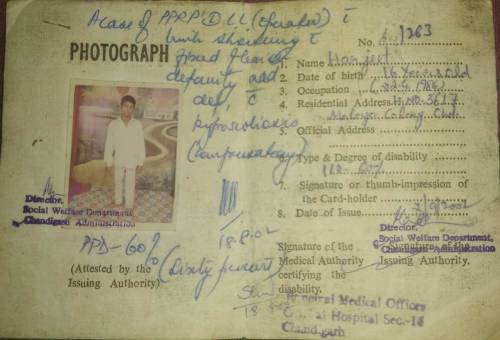 A case of PPRP D LL (operated) c
limb shortening c
fixed flexion
deformity add
def, c
kyphoscoliosis
(compensatory)
PHOTOGRAPH
Director,
Social Welfare Department
Chandigarh Administration
18.8.02
PPD-60%
(Sixty percent)
(Attested by the
Issuing Authority)
No. /263
1. Name Harjeet
2. Date of birth 16 Years Old
3. Occupation (1986)
4. Residential Address H.NO. 3617
Colony, Chd.
5. Official Address
Type & Degree of disability :
60%
7. Signature or thumb-impression
of the Card-holder
8. Date of Issue 2002
Director,
Social Welfare Department,
Chandigarh Administration
Signature of the
Medical Authority
certifying the
disability.
Signature of the
Issuing Authority.
18.8.02
Principal Medical Officer
General Hospital Sec.-16
Chandigarh